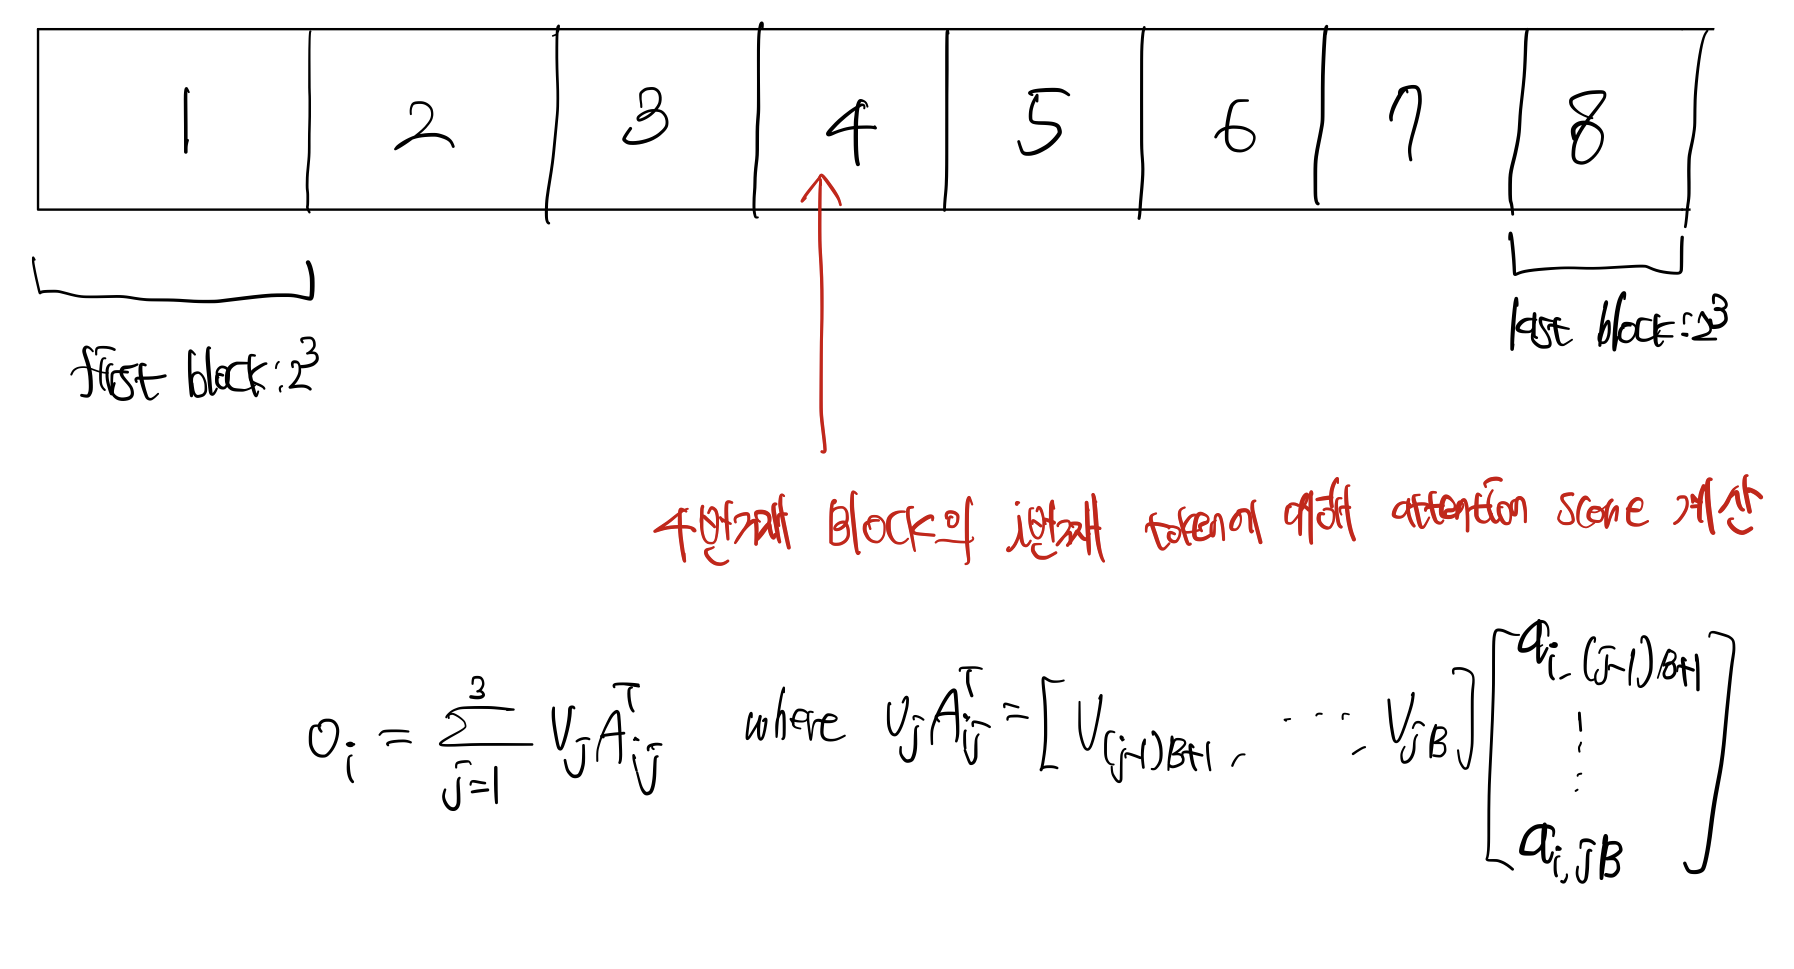 1 2 3 4 5 6 7 8
first block : 2^3
last block : 2^3
4번째 Block의 i번째 token에 대해 attention score 계산
o_i = \sum_{j=1}^{3} V_j A_{ij}^T where V_j A_{ij}^T = [V_{(j-1)B+1}, ⋯, V_{jB}] [a_{i,(j-1)B+1} ⋮ a_{i,jB}]